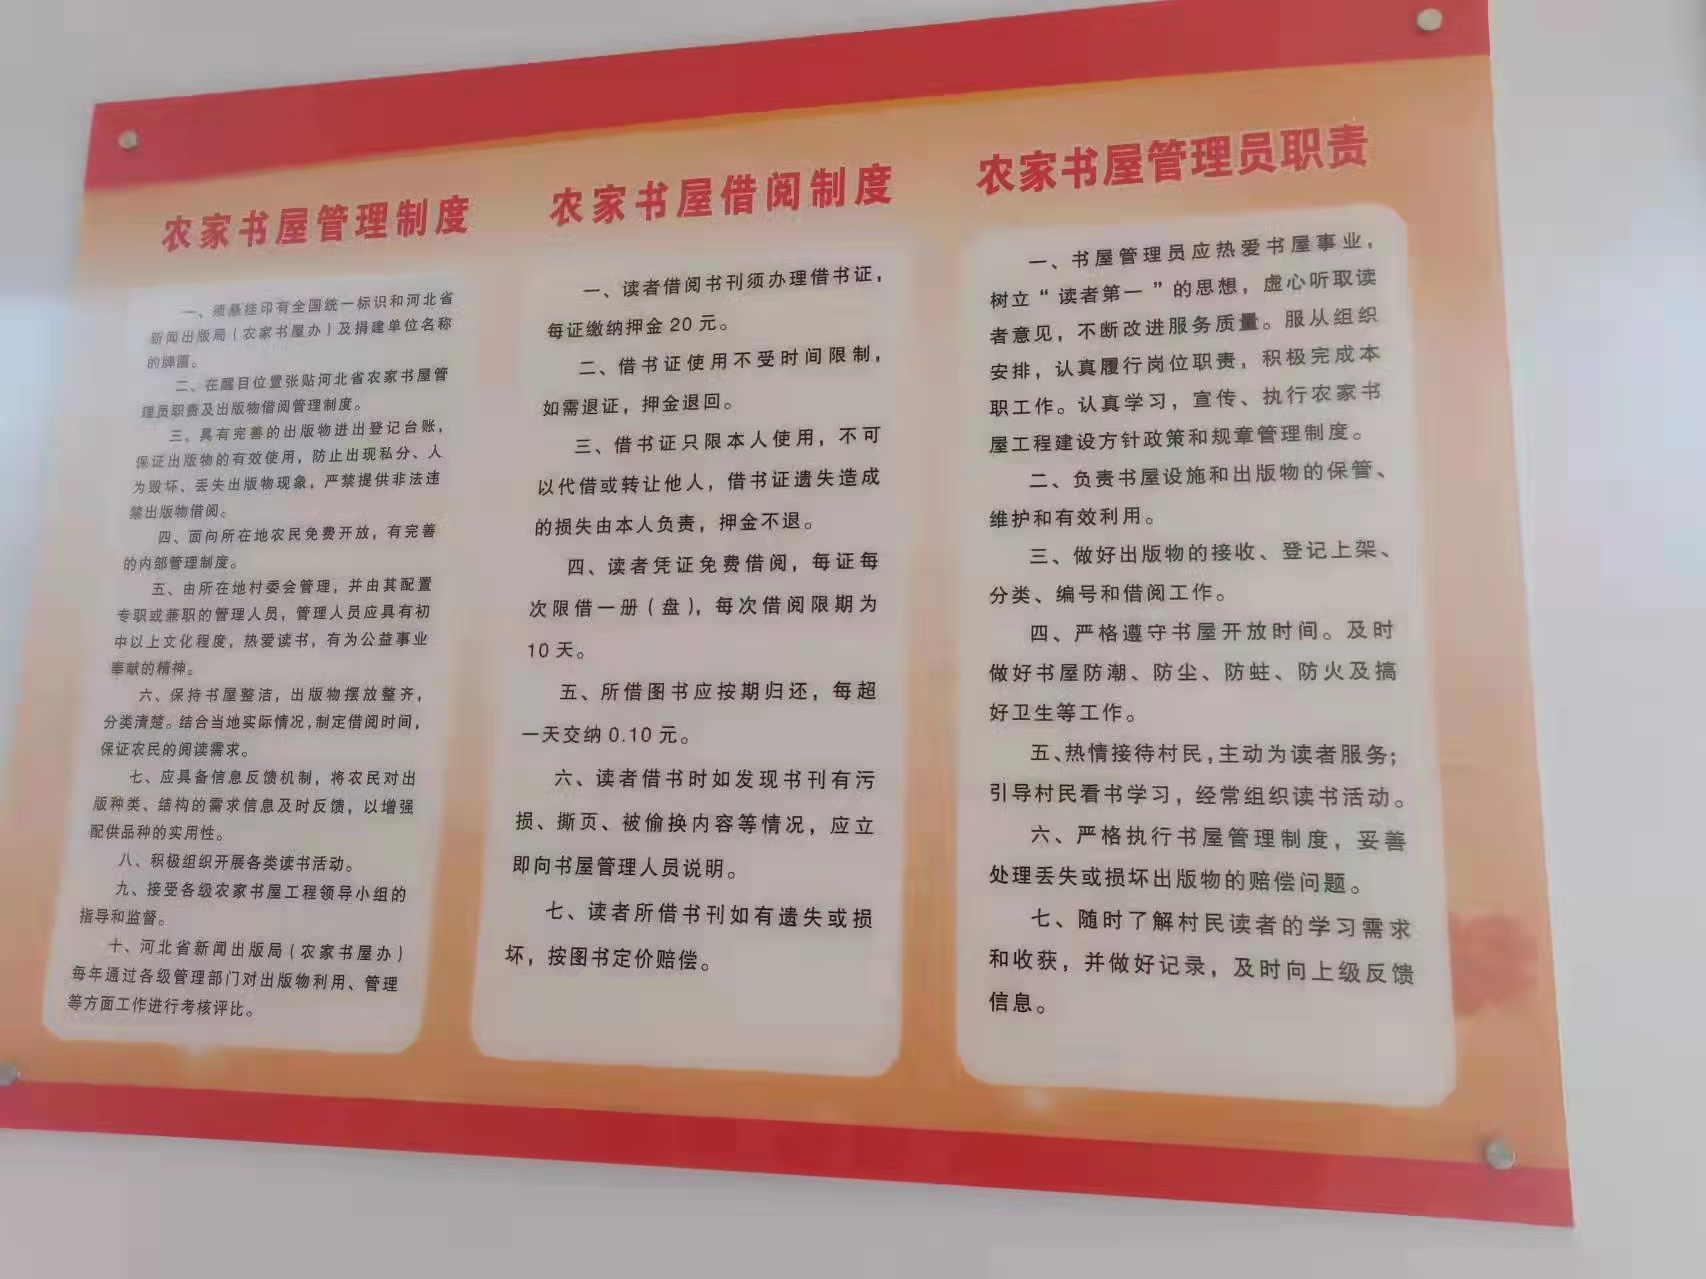 农家书屋管理制度
一、须悬挂印有全国统一标识和河北省
新闻出版局（农家书屋办）及捐建单位名称
的牌匾。
二、在醒目位置张贴河北省农家书屋管
理员职责及出版物借阅管理制度。
三、具有完善的出版物进出登记台账，
保证出版物的有效使用，防止出现私分、人
为毁坏、丢失出版物现象，严禁提供非法违
禁出版物借阅。
四、面向所在地农民免费开放，有完善
的内部管理制度。
五、由所在地村委会管理，并由其配置
专职或兼职的管理人员，管理人员应具有初
中以上文化程度，热爱读书，有为公益事业
奉献的精神。
六、保持书屋整洁，出版物摆放整齐，
分类清楚。结合当地实际情况，制定借阅时间，
保证农民的阅读需求。
七、应具备信息反馈机制，将农民对出
版种类、结构的需求信息及时反馈，以增强
配供品种的实用性。
八、积极组织开展各类读书活动。
九、接受各级农家书屋工程领导小组的
指导和监督。
十、河北省新闻出版局（农家书屋办）
每年通过各级管理部门对出版物利用、管理
等方面工作进行考核评比。
农家书屋借阅制度
一、读者借阅书刊须办理借书证，
每证缴纳押金20元。
二、借书证使用不受时间限制，
如需退证，押金退回。
三、借书证只限本人使用，不可
以代借或转让他人，借书证遗失造成
的损失由本人负责，押金不退。
四、读者凭证免费借阅，每证每
次限借一册（盘），每次借阅限期为
10天。
五、所借图书应按期归还，每超
一天交纳0.10元。
六、读者借书时如发现书刊有污
损、撕页、被偷换内容等情况，应立
即向书屋管理人员说明。
七、读者所借书刊如有遗失或损
坏，按图书定价赔偿。
农家书屋管理员职责
一、书屋管理员应热爱书屋事业，
树立“读者第一”的思想，虚心听取读
者意见，不断改进服务质量。服从组织
安排，认真履行岗位职责，积极完成本
职工作。认真学习，宣传、执行农家书
屋工程建设方针政策和规章管理制度。
二、负责书屋设施和出版物的保管、
维护和有效利用。
三、做好出版物的接收、登记上架、
分类、编号和借阅工作。
四、严格遵守书屋开放时间。及时
做好书屋防潮、防尘、防蛀、防火及搞
好卫生等工作。
五、热情接待村民，主动为读者服务；
引导村民看书学习，经常组织读书活动。
六、严格执行书屋管理制度，妥善
处理丢失或损坏出版物的赔偿问题。
七、随时了解村民读者的学习需求
和收获，并做好记录，及时向上级反馈
信息。